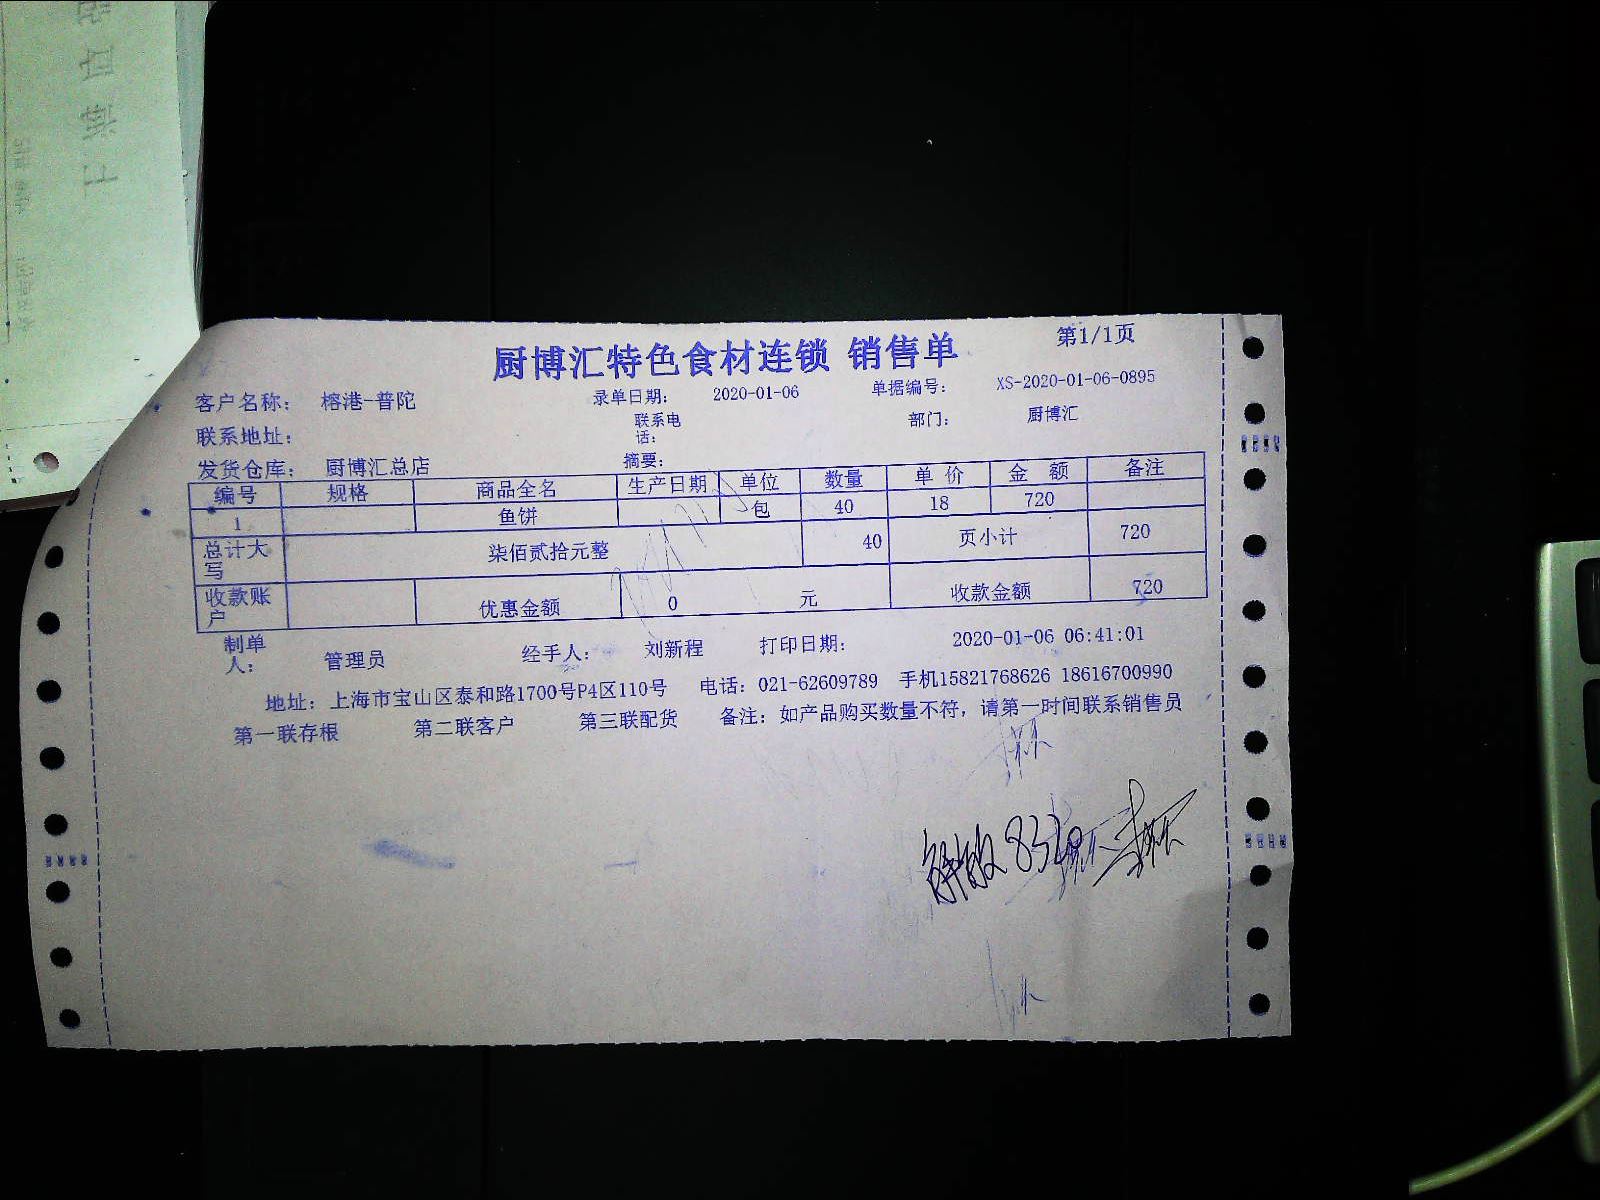 第1/1页
厨博汇特色食材连锁 销售单
客户名称： 榕港-普陀 录单日期： 2020-01-06 单据编号： XS-2020-01-06-0895
联系地址： 联系电话： 部门： 厨博汇
发货仓库： 厨博汇总店 摘要：
编号 规格 商品全名 生产日期 单位 数量 单 价 金 额 备注
1 鱼饼 包 40 18 720
总计大写 柒佰贰拾元整 40 页小计 720
收款账户 优惠金额 0 元 收款金额 720
制单人： 管理员 经手人： 刘新程 打印日期： 2020-01-06 06:41:01
地址：上海市宝山区泰和路1700号P4区110号 电话：021-62609789 手机15821768626 18616700990
第一联存根 第二联客户 第三联配货 备注：如产品购买数量不符，请第一时间联系销售员
上海